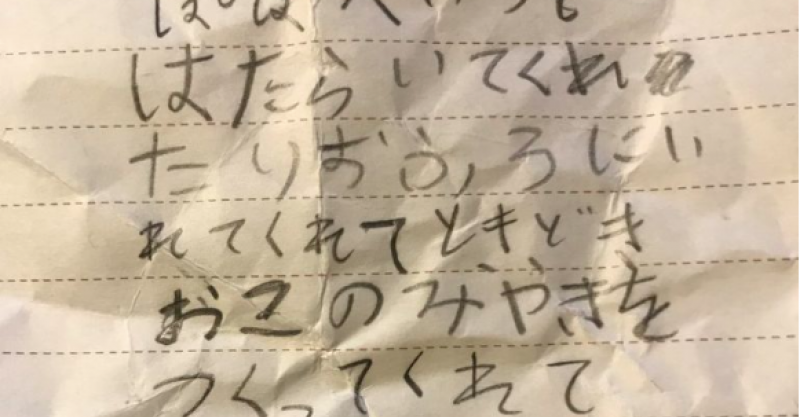 はたらいてくれ
たりおふろにい
れてくれてときどき
おこのみやきを
つくってくれて